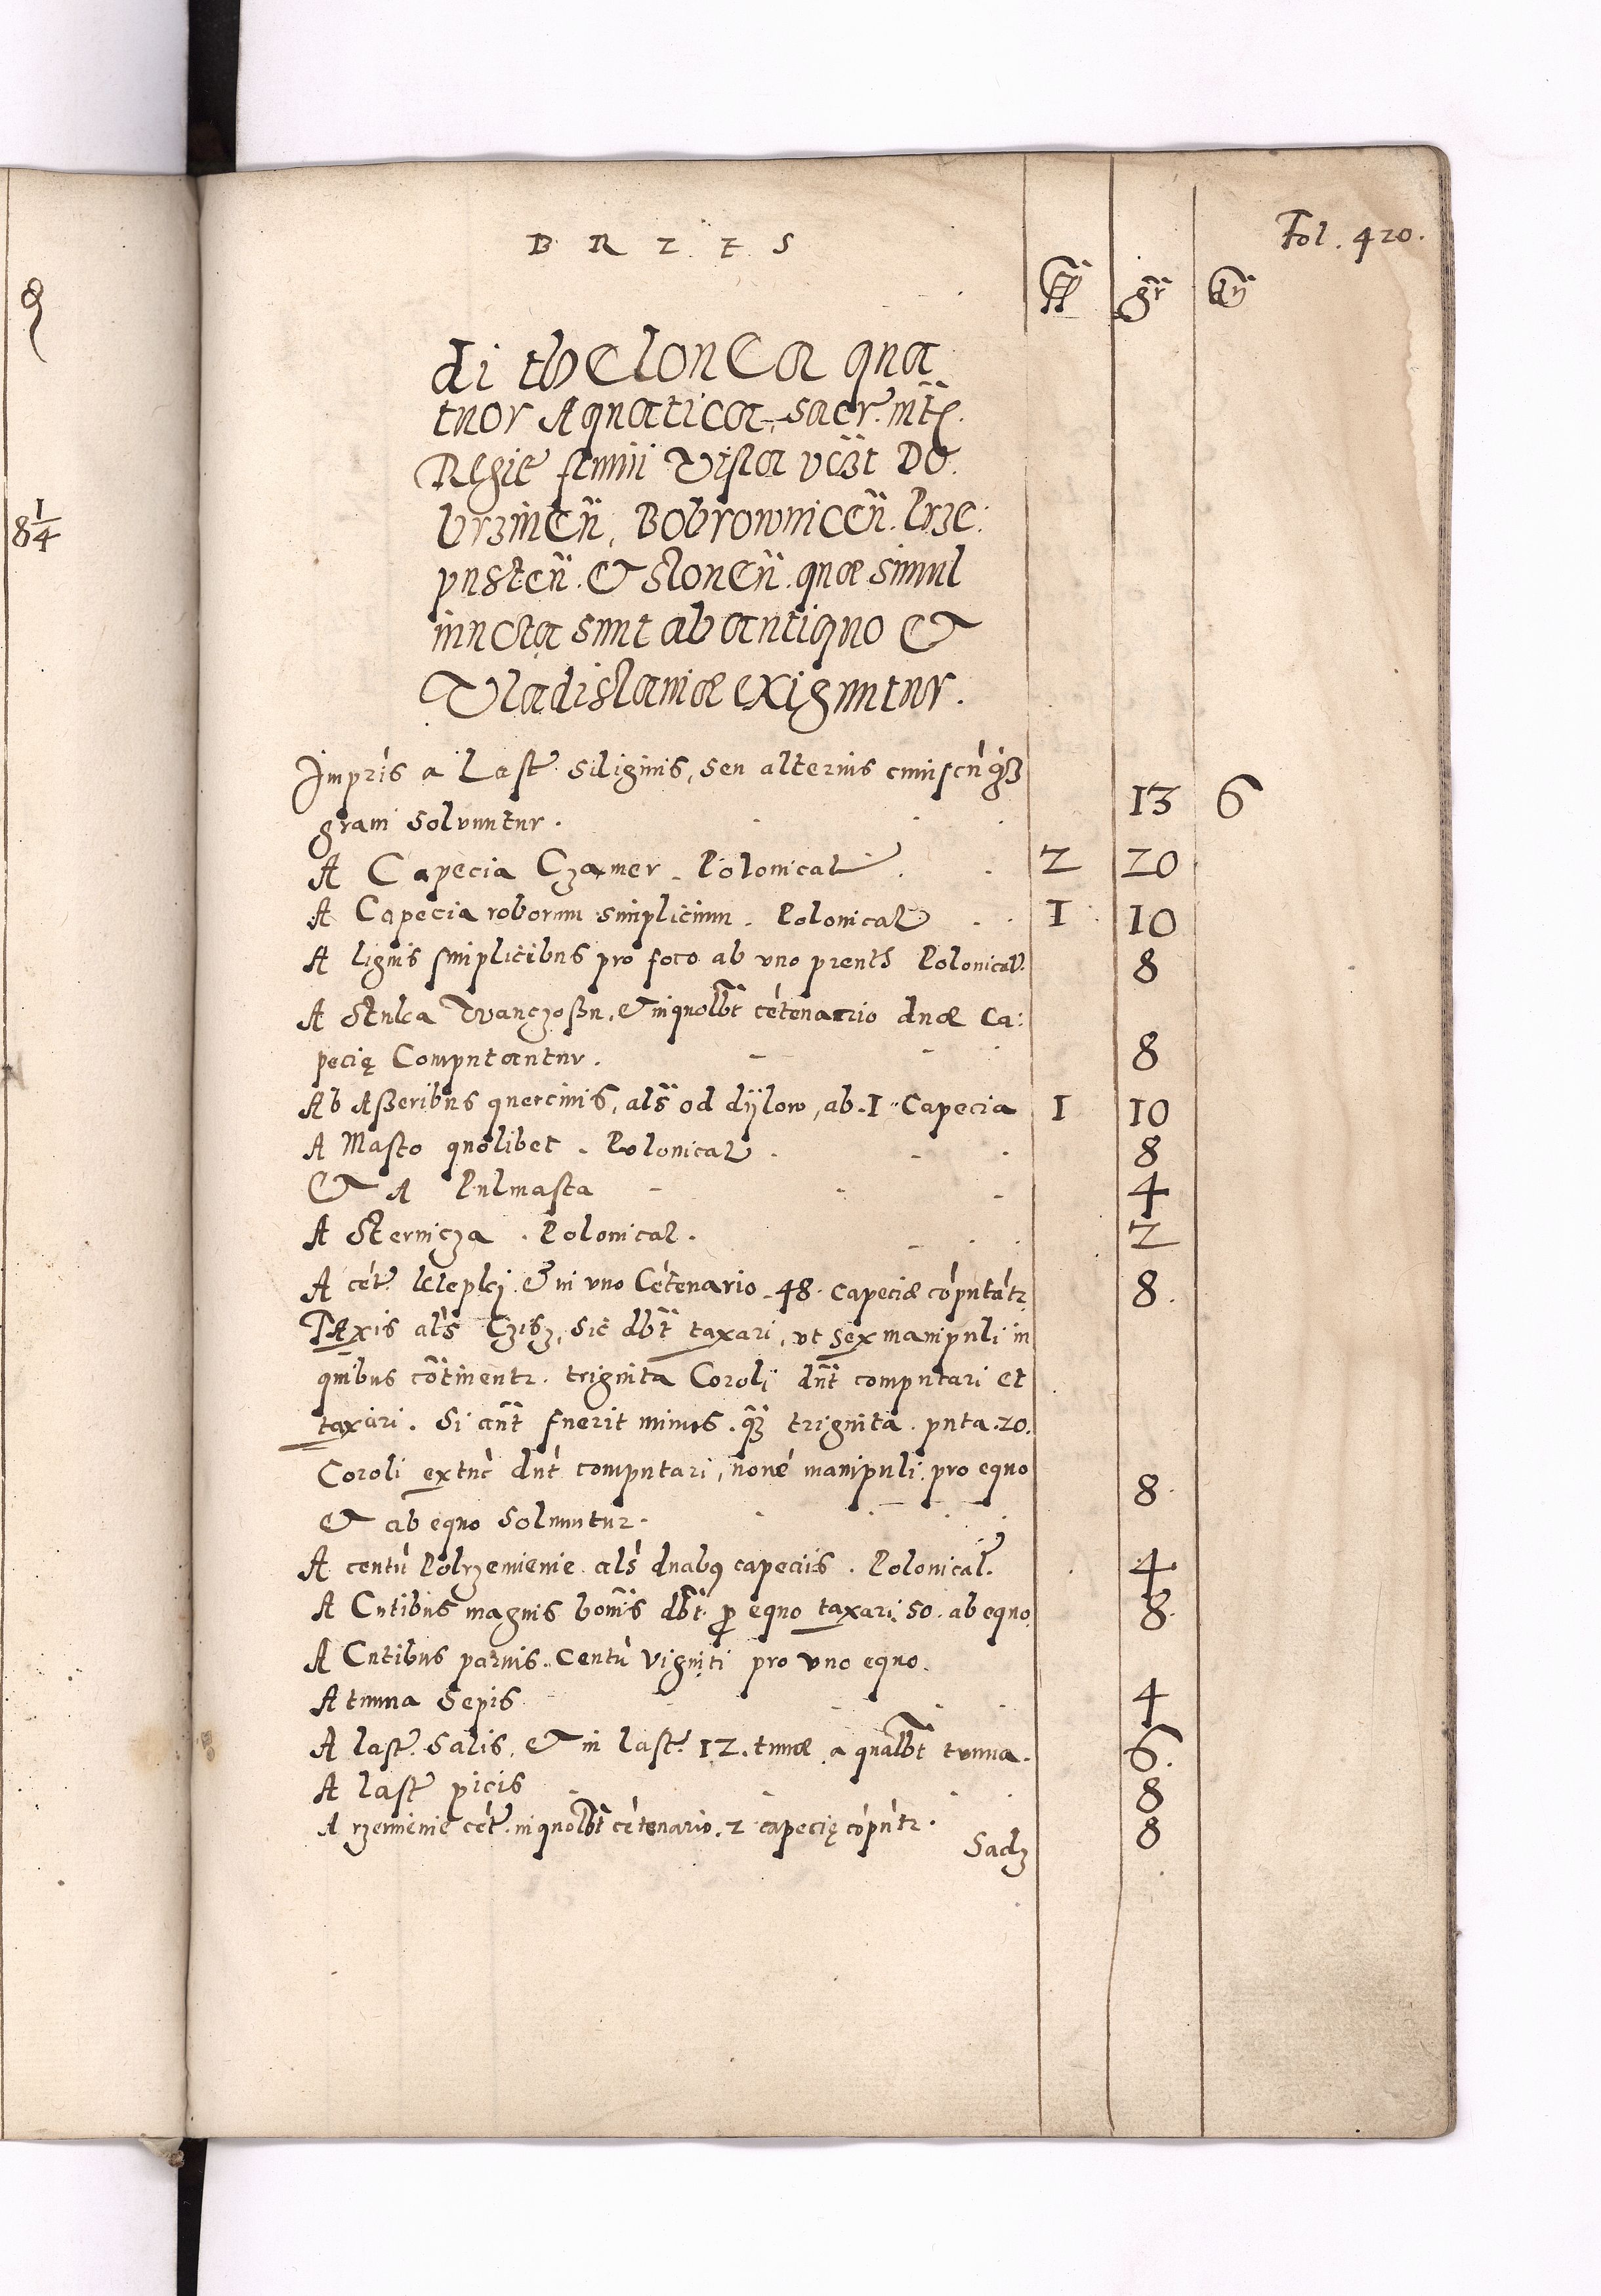 Fol. 420.
B R Z E S
di thelonea qua
tuor Aquatica, sacr. mtē.
Regiē fluuii Visla vczt Do
brzinēn, Bobrownicēn. Prze:
pustēn. & Slonēn. quæ simul
iuncta sunt ab antiquo &
Vladislauiæ exiguntur.
gr
Impris a Last. siliginis, seu alterius cuiuscūqz
grani soluuntur. 13 6
A Capecia Czamer. Polonical 2 20
A Capecia roborum simplicium. Polonical 1 10
A lignis simplicibus pro foco ab vno prenth Polonical. 8
A Stuka Wanczossu, & in quolbt cētenario duæ Ca:
pecię Computantur. 8
Ab Asseribus quercinis, als od dylow, ab 1 Capecia 1 10
A Masto quolibet. Polonical 8
& A Pulmasta 4
A Sternicza. Polonical. 2
A cēt. klepki & in vno Cētenario 48 capeciæ cōputātr 8
TAxis als Czisz, sic dbt taxari, vt sex manipuli in
quibus cōtinentr. triginta Coroli dnt computari et
taxari. Si aut fuerit minus. qz triginta. puta. 20.
Coroli extūc dnt computari, none manipuli pro equo
& ab equo soluuntur. 8
A centū Polrzemienie als duabus capeciis. Polonical. 4
A Cutibus magnis bouis dbt. p equo taxari 50. ab equo 8
A Cutibus paruis. Centū viginti pro vno equo.
A tunna Sepis 4
A last. Salis, & in last. 12. tunnæ a qualbt tunna. 6
A last picis 8
A rzemienie cēt. in quolbt cētenario. 2 capecię cōputr. 8
Sadz
8 1/4